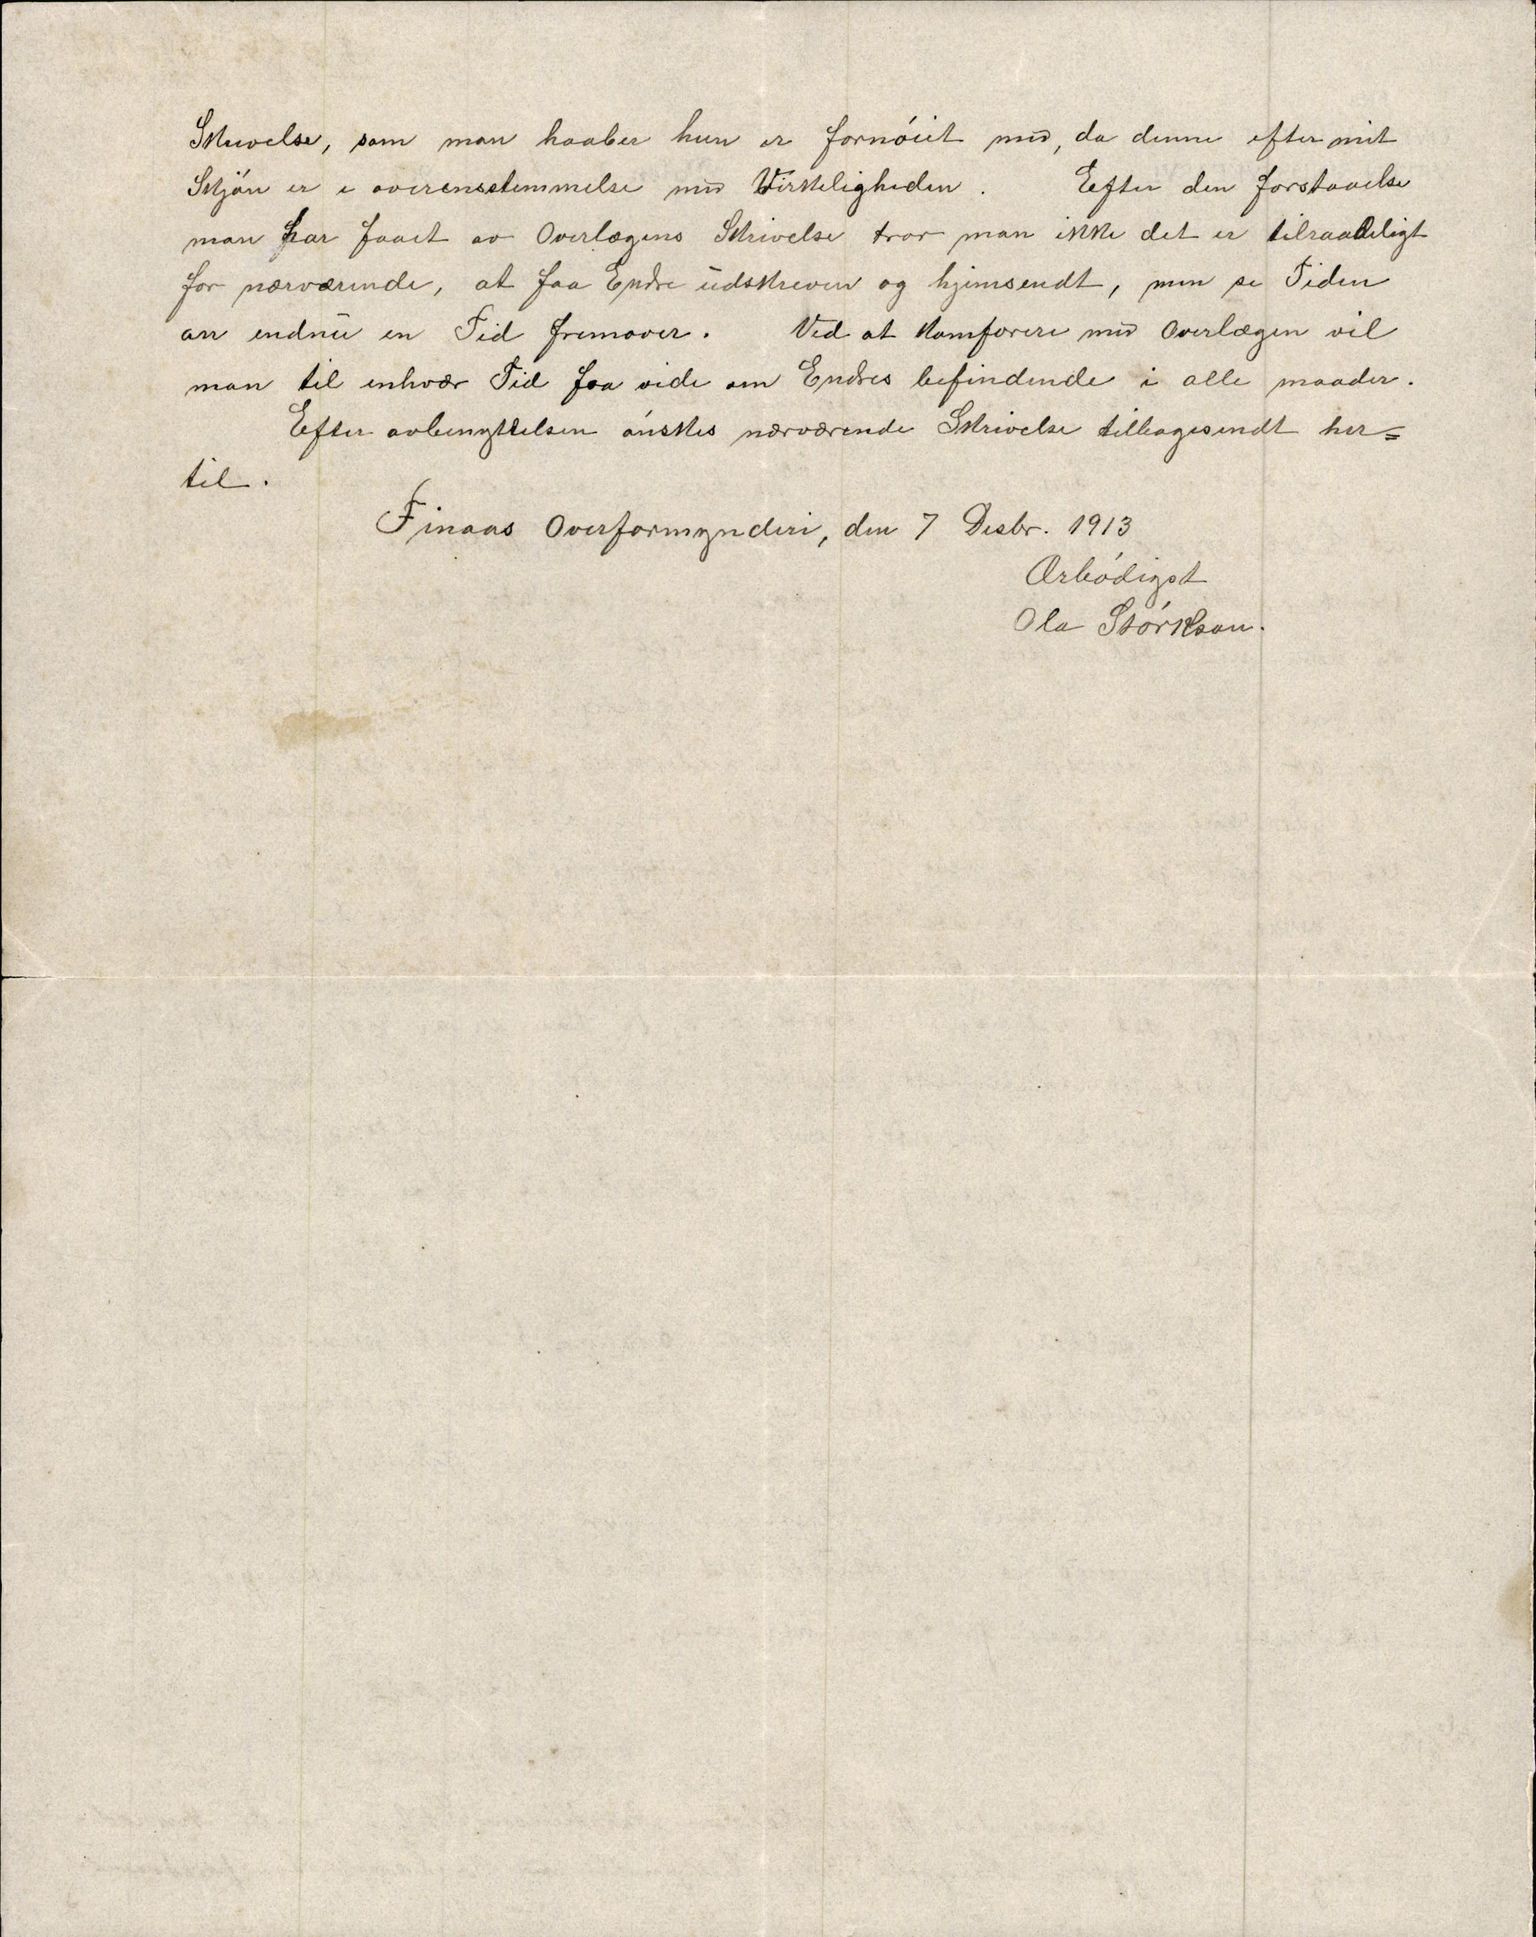 Skrivelse, som man haaber hun er fornóiet med, da denne efter mit
Skjón er i overensstemmelse med Virkeligheden. Efter den forstaaelse
man har faaet av Overlægens Skrivelse tror man ikke det er tilraadeligt
for nærværende, at faa Endre udskreven og hjemsendt, men se Tiden
an endnu en Tid fremover. Ved at konforere med Overlægen vil
man til enhvær Tid faa vide om Endres befindende i alle maader.
Efter avbenyttelsen ónskes nærværende Skrivelse tilbagesendt her=
til.
Finaas Overformynderi, den 7 Desbr. 1913
Ærbódigst
Ola Stórkson.